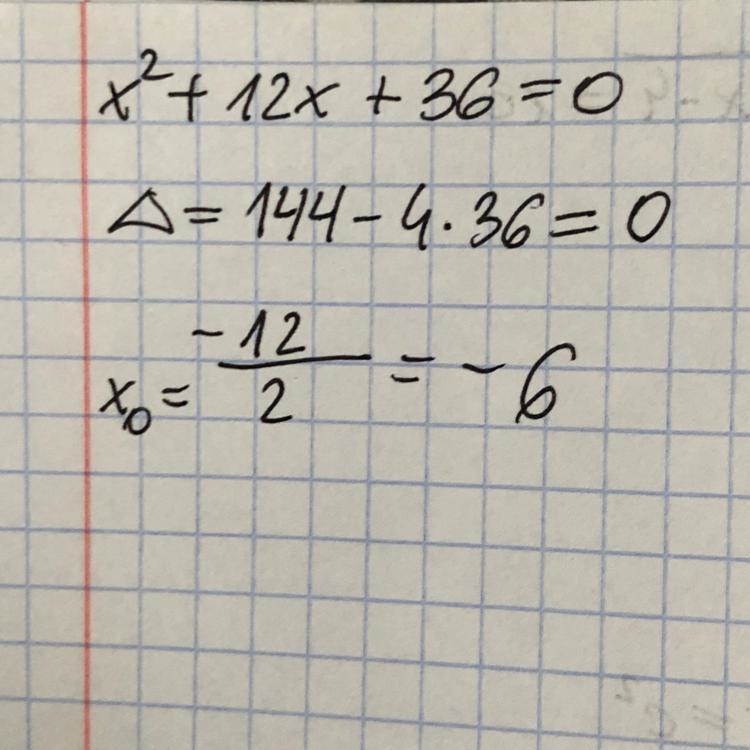 x² + 12x + 36 = 0
Δ = 144 - 4 · 36 = 0
x₀ = -12/2 = -6